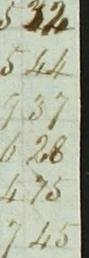 5 32
5 44
9 37
6 28
4 75
7 45